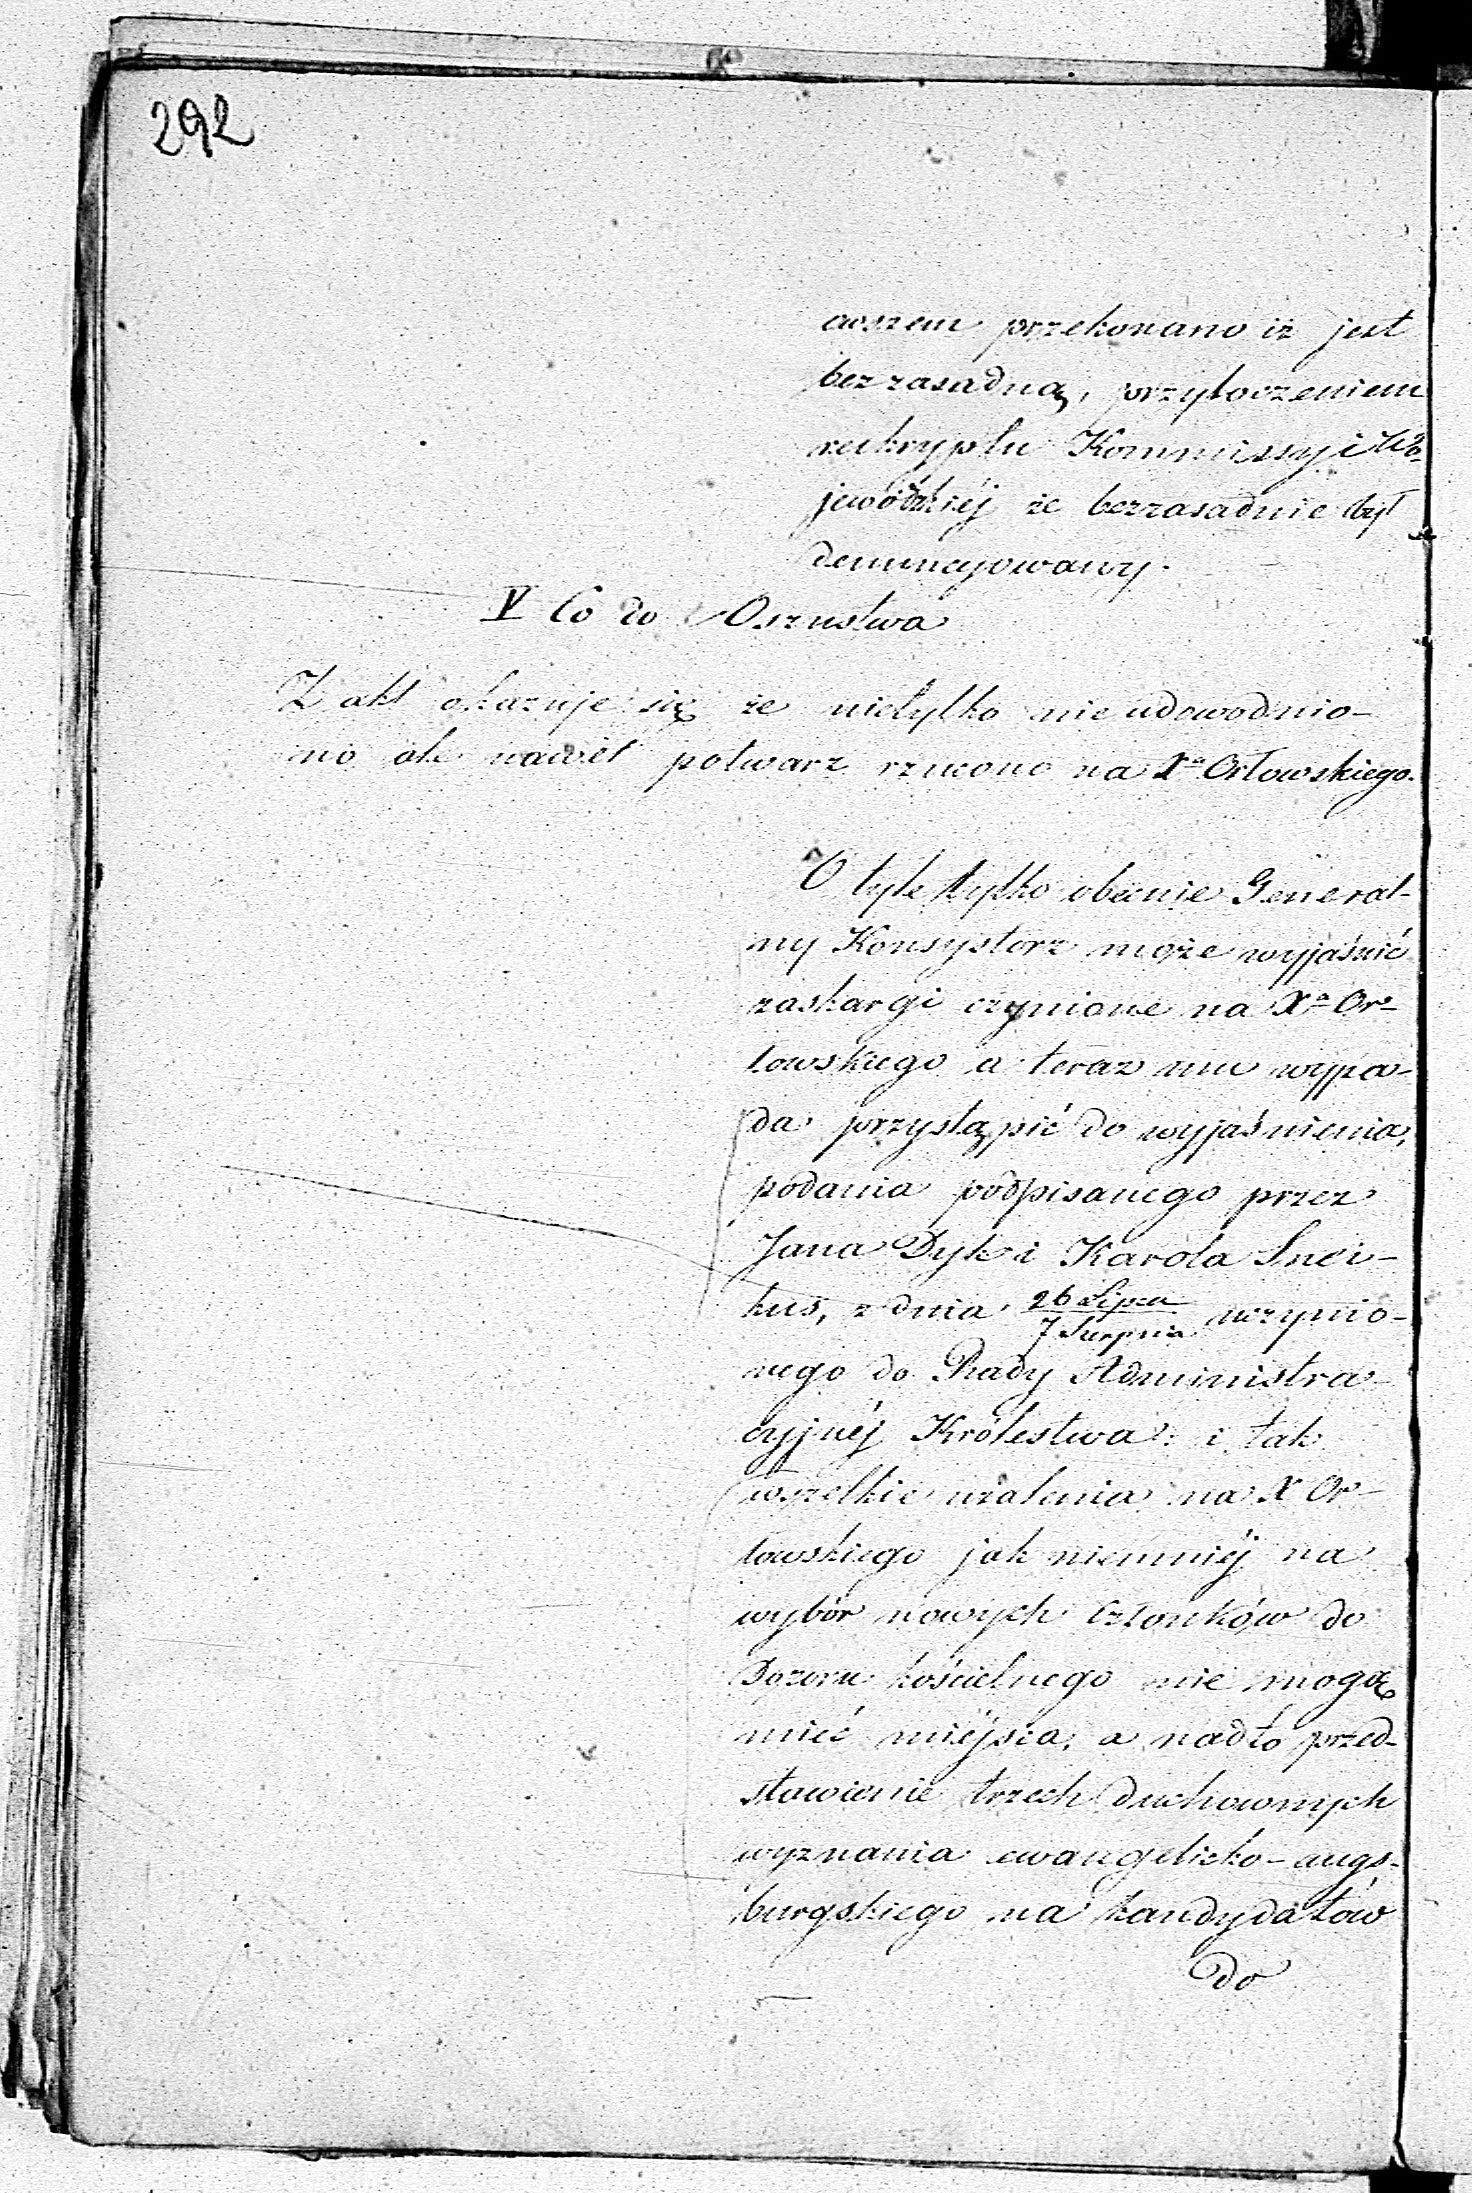 292
owszem przekonano iż jest
bezzasadną, przytoczeniem
reskryptu Kommissyi Wo-
jewódzkiéj że bezzasadnie był
denuncyowany.
V Co do Oszustwa
Z akt okazuje się że nietylko nie udowodnio-
no ale nawet potwarz rzucono na Xa Orłowskiego.
O tyle tylko obecnie General-
ny Konsystorz może wyjaśnić
zaskargi czynione na Xa Or-
łowskiego a teraz mu wypa-
da przystąpić do wyjaśnienia,
podania podpisanego przez
Jana Dyk i Karola Snei-
kus, z dnia 26 Lipca / 7 Sierpnia uczynio-
nego do Rady Administra-
cyjnéj Królestwa: i tak
wszelkie użalenia na X Or-
łowskiego jak niemniéj na
wybór nowych Członków do
Dozoru kościelnego nie mogą
mieć miéjsca, a nadto przed-
stawienie trzech Duchownych
wyznania ewangelicko-augs-
burgskiego na kandydatów
do